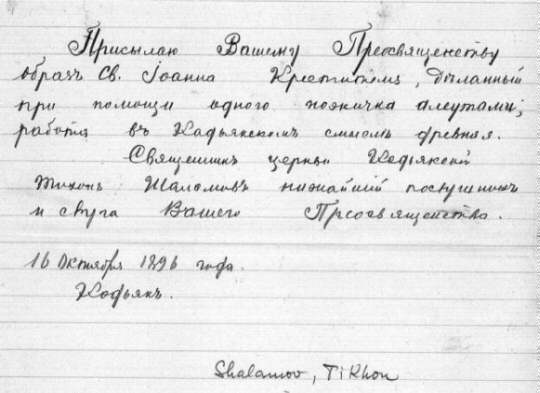 Присылаю Вашему Преосвященству
образъ Св. Іоанна Крестителя, дѣланный
при помощи одного ножичка алеутами;
работа въ Кадьякскомъ смыслѣ древняя.
Священникъ церкви Кадьякской
Тихонъ Шаламовъ нижайшій послушникъ
и слуга Вашего Преосвященства.
16 Октября 1896 года.
Кадьякъ.
Shalamov, Tikhon